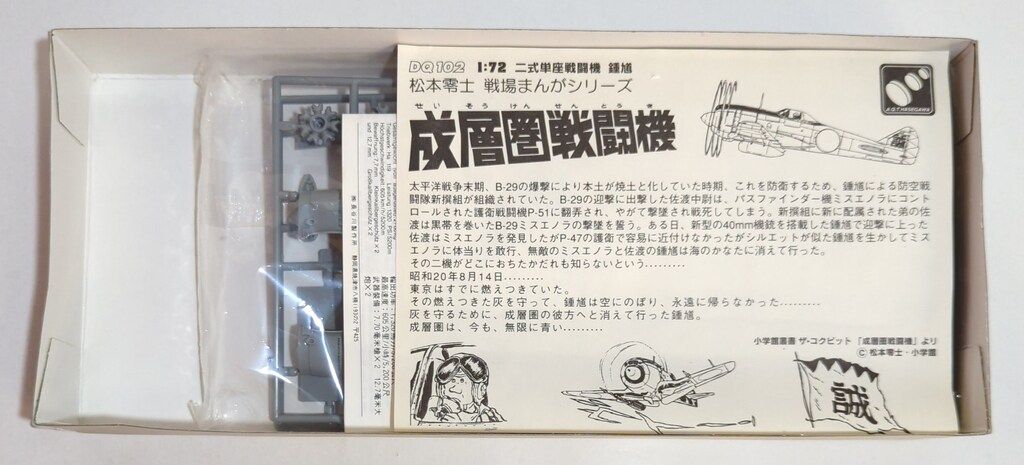 DQ102 1:72 二式単座戦闘機 鍾馗
松本零士 戦場まんがシリーズ
せいそうけんせんとうき
成層圏戦闘機
A.Q.T. HASEGAWA
太平洋戦争末期、B-29の爆撃により本土が焼土と化していた時期、これを防衛するため、鍾馗による防空戦
闘隊新撰組が組織されていた。B-29の迎撃に出撃した佐渡中尉は、パスファインダー機ミスエノラにコント
ロールされた護衛戦闘機P-51に翻弄され、やがて撃墜され戦死してしまう。新撰組に新に配属された弟の佐
渡は黒帯を巻いたB-29ミスエノラの撃墜を誓う。ある日、新型の40mm機銃を搭載した鍾馗で迎撃に上った
佐渡はミスエノラを発見したがP-47の護衛で容易に近付けなかったがシルエットが似た鍾馗を生かしてミス
エノラに体当りを敢行、無敵のミスエノラと佐渡の鍾馗は海のかなたに消えて行った。
その二機がどこにおちたかだれも知らないという………
昭和20年8月14日………
東京はすでに燃えつきていた。
その燃えつきた灰を守って、鍾馗は空にのぼり、永遠に帰らなかった………
灰を守るために、成層圏の彼方へと消えて行った鍾馗。
成層圏は、今も、無限に青い………
小学館叢書 ザ・コクピット「成層圏戦闘機」より
© 松本零士・小学館
Höchstgeschwindigkeit: 605 km/h/5200m
und 12,7 mm Großkalibergeschütz×2
㈱長谷川製作所 静岡県焼津市八楠1193の2 〒425
最高速度：605公里/小時/5,200公尺
武器装備：7.70毫米槍×2 12.7毫米大
炮×2